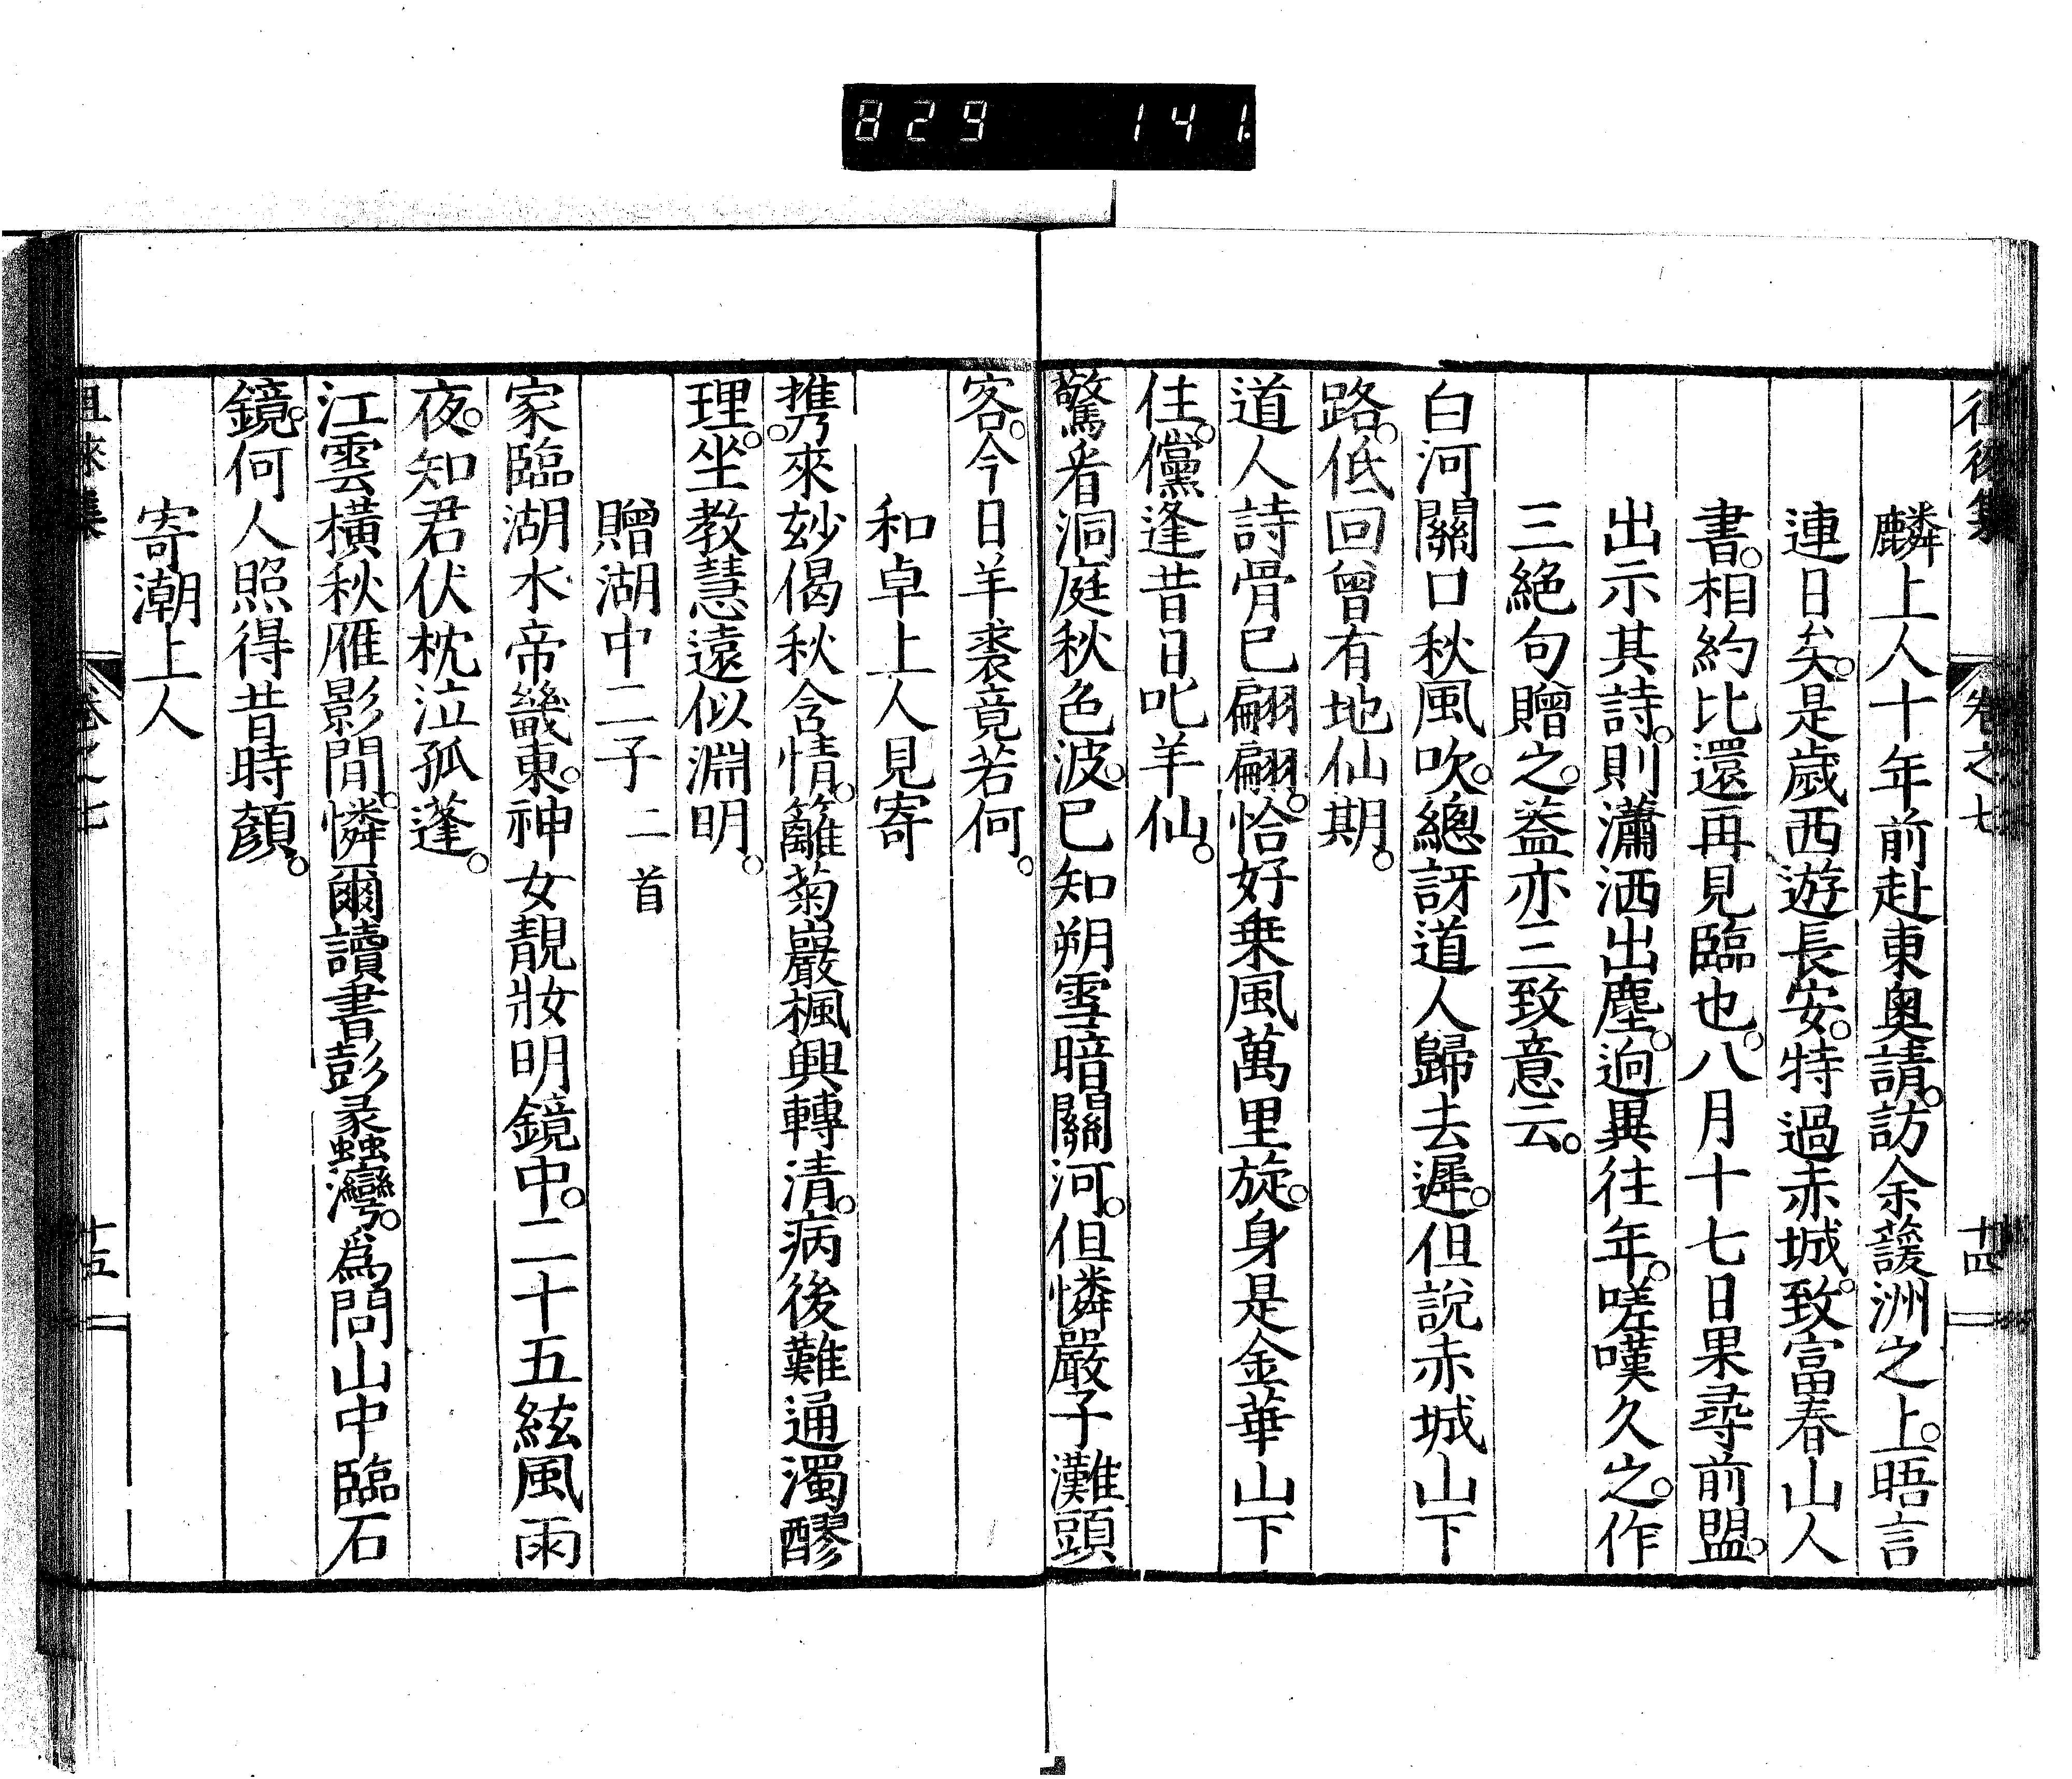 829 141
麟上人十年前赴東奧請。訪余蘐洲之上。晤言
連日矣。是歲西遊長安。特過赤城。致富春山人
書。相約比還再見臨也。八月十七日果尋前盟。
出示其詩。則瀟洒出塵。逈異往年。嗟嘆久之。作
三絕句贈之。葢亦三致意云。
白河關口秋風吹。總訝道人歸去遲。但說赤城山下
路。低回曾有地仙期。
道人詩骨已翩翩。恰好乗風萬里旋。身是金華山下
住。儻逢昔日叱羊仙。
驚看洞庭秋色波。已知朔雪暗關河。但憐嚴子灘頭
客。今日羊裘竟若何。
和卓上人見寄
携來玅偈秋含情。籬菊巖楓興轉清。病後難通濁醪
理。坐教慧遠似淵明。
贈湖中二子 二首
家臨湖水帝畿東。神女靚妝明鏡中。二十五絃風雨
夜。知君伏枕泣孤蓬。
江雲橫秋雁影閒。憐爾讀書彭蠡灣。爲問山中臨石
鏡。何人照得昔時顏。
寄潮上人
卷之七
十五